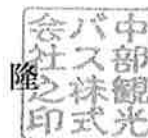 中部観光
バス株式
会社之印
隆